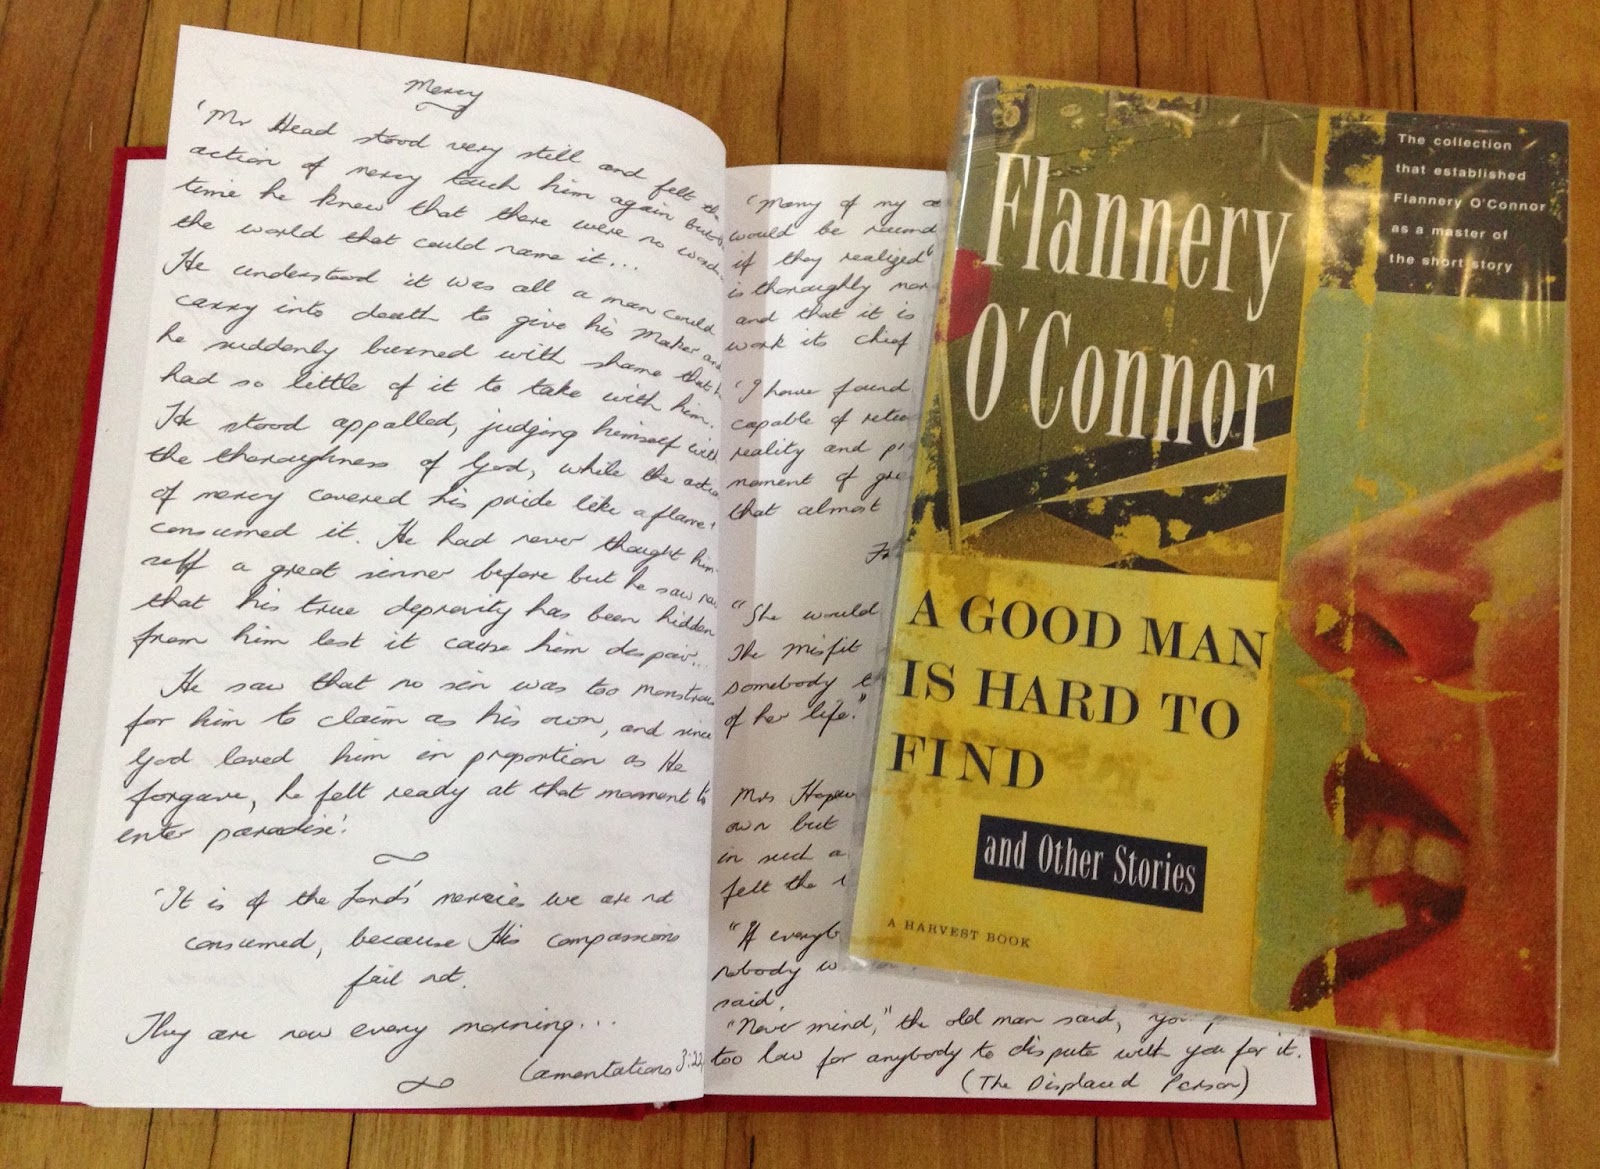 Mercy
'Mr Head stood very still and felt the
action of mercy touch him again but
time he knew that there were no words
the world that could name it...
He understood it was all a man could
carry into death to give his Maker and
he suddenly burned with shame that h
had so little of it to take with him.
He stood appalled, judging himself with
the thoroughness of God, while the actio
of mercy covered his pride like a flame
consumed it. He had never thought him-
self a great sinner before but he saw now
that his true depravity has been hidden
from him lest it cause him despair...
He saw that no sin was too monstrous
for him to claim as his own, and since
God loved him in proportion as He
forgave, he felt ready at that moment to
enter paradise'.
'It is of the Lord's mercies we are not
consumed, because His compassions
fail not.
They are new every morning...
Lamentations 3:22
'Many of my
would be
if they realized
is thoroughly
and that it is
work its chief
'I have found
capable of
reality and
moment of
that almost
"She would
The Misfit
somebody
of her life."
Mrs
own but
in such a
felt the
"If
nobody
said.
"Never mind," the old man said,
too low for anybody to dispute with you for it.
(The Displaced Person)
Flannery
O'Connor
The collection
that established
Flannery O'Connor
as a master of
the short story
A GOOD MAN
IS HARD TO
FIND
and Other Stories
A HARVEST BOOK